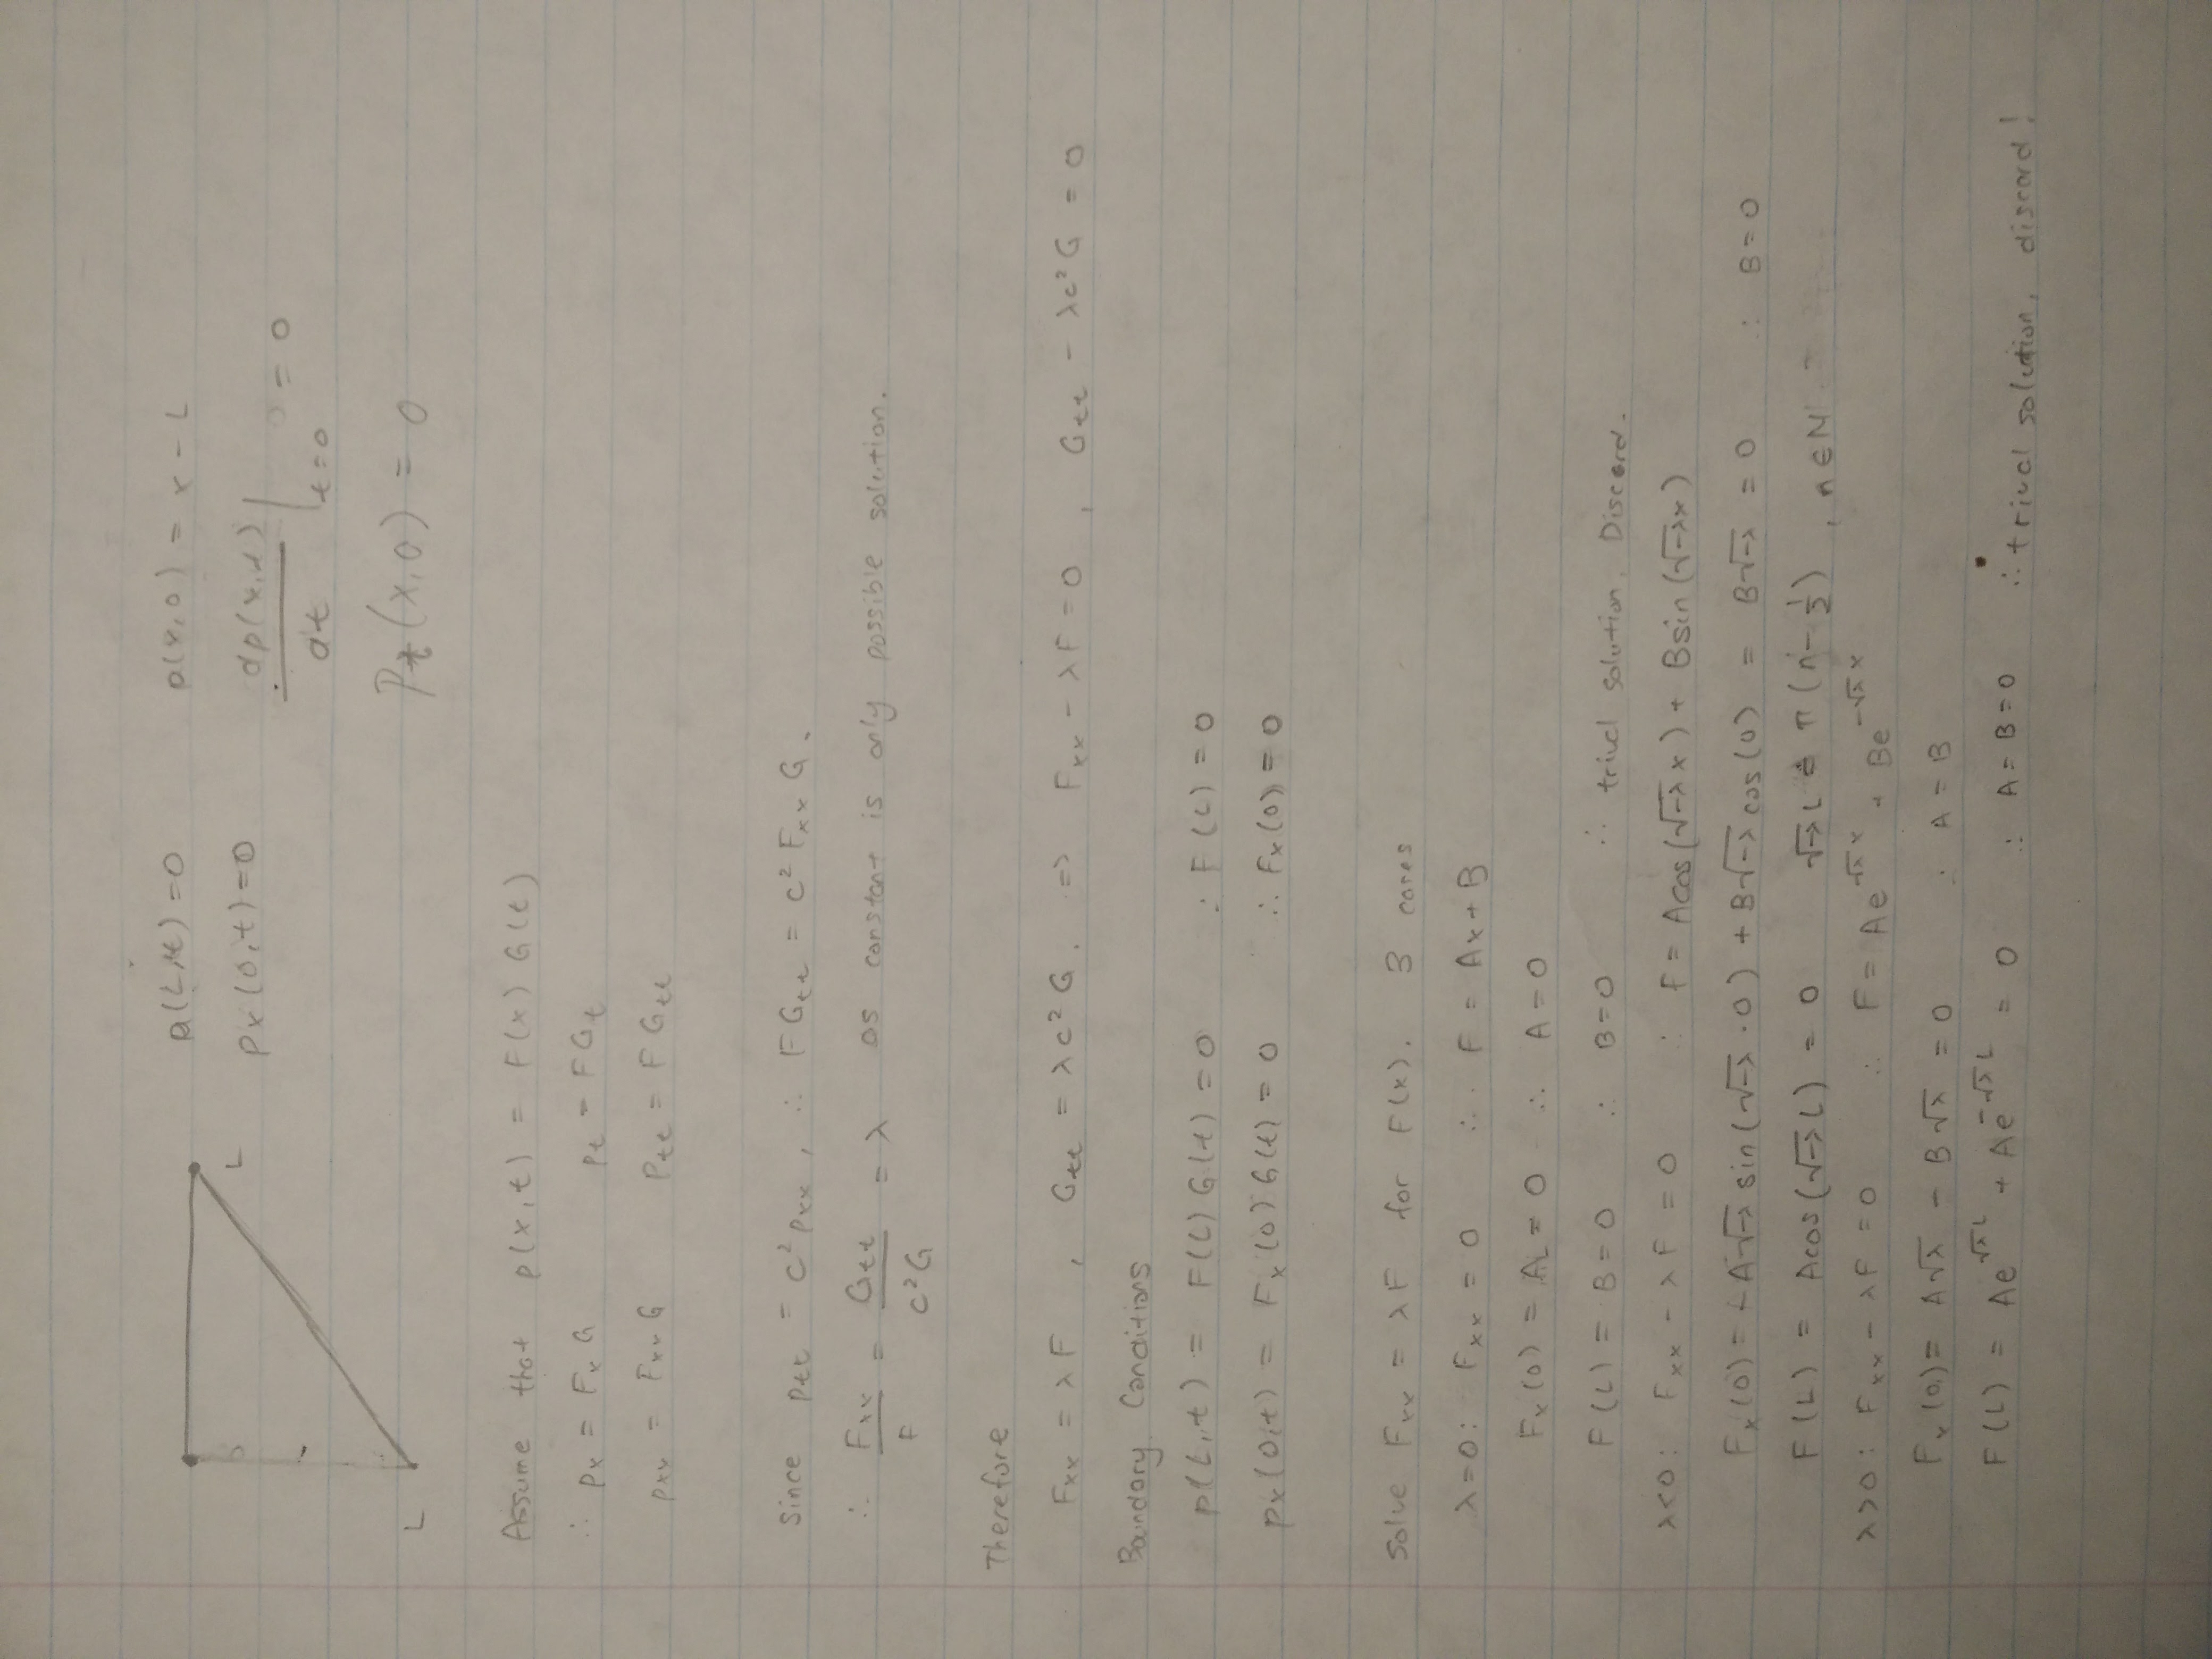 p(L,t)=0    p(x,0) = x - L
px(0,t)=0    dp(x,t)/dt |t=0 = 0
L
Pt(x,0) = 0
L
Assume that p(x,t) = F(x) G(t)
∴ px = FxG    pt = FGt
pxx = FxxG    Ptt = FGtt
Since ptt = c²pxx, ∴ FGtt = c²FxxG.
∴ Fxx/F = Gtt/c²G = λ    as constant is only possible solution.
Therefore
Fxx = λF , Gtt = λc²G. => Fxx - λF = 0 , Gtt - λc²G = 0
Boundary Conditions
p(L,t) = F(L)G(t) = 0    ∴ F(L) = 0
px(0,t) = Fx(0)G(t) = 0    ∴ Fx(0) = 0
Solve Fxx = λF for F(x). 3 cases
λ=0: Fxx = 0    ∴ F = Ax + B
Fx(0) = AL = 0    ∴ A = 0
F(L) = B = 0    ∴ B = 0    ∴ trivcl solution. Discard.
λ<0: Fxx - λF = 0    ∴ F = Acos(√-λx) + Bsin(√-λx)
Fx(0) = -A√-λ sin(√-λ·0) + B√-λ cos(0) = B√-λ = 0    ∴ B = 0
F(L) = Acos(√-λL) = 0    √-λL = π(n-½), n∈N
λ>0: Fxx - λF = 0    ∴ F = Ae^√λx + Be^-√λx
Fx(0) = A√λ - B√λ = 0    ∴ A = B
F(L) = Ae^√λL + Ae^-√λL = 0    ∴ A = B = 0    ∴ trivcl solution, discard!